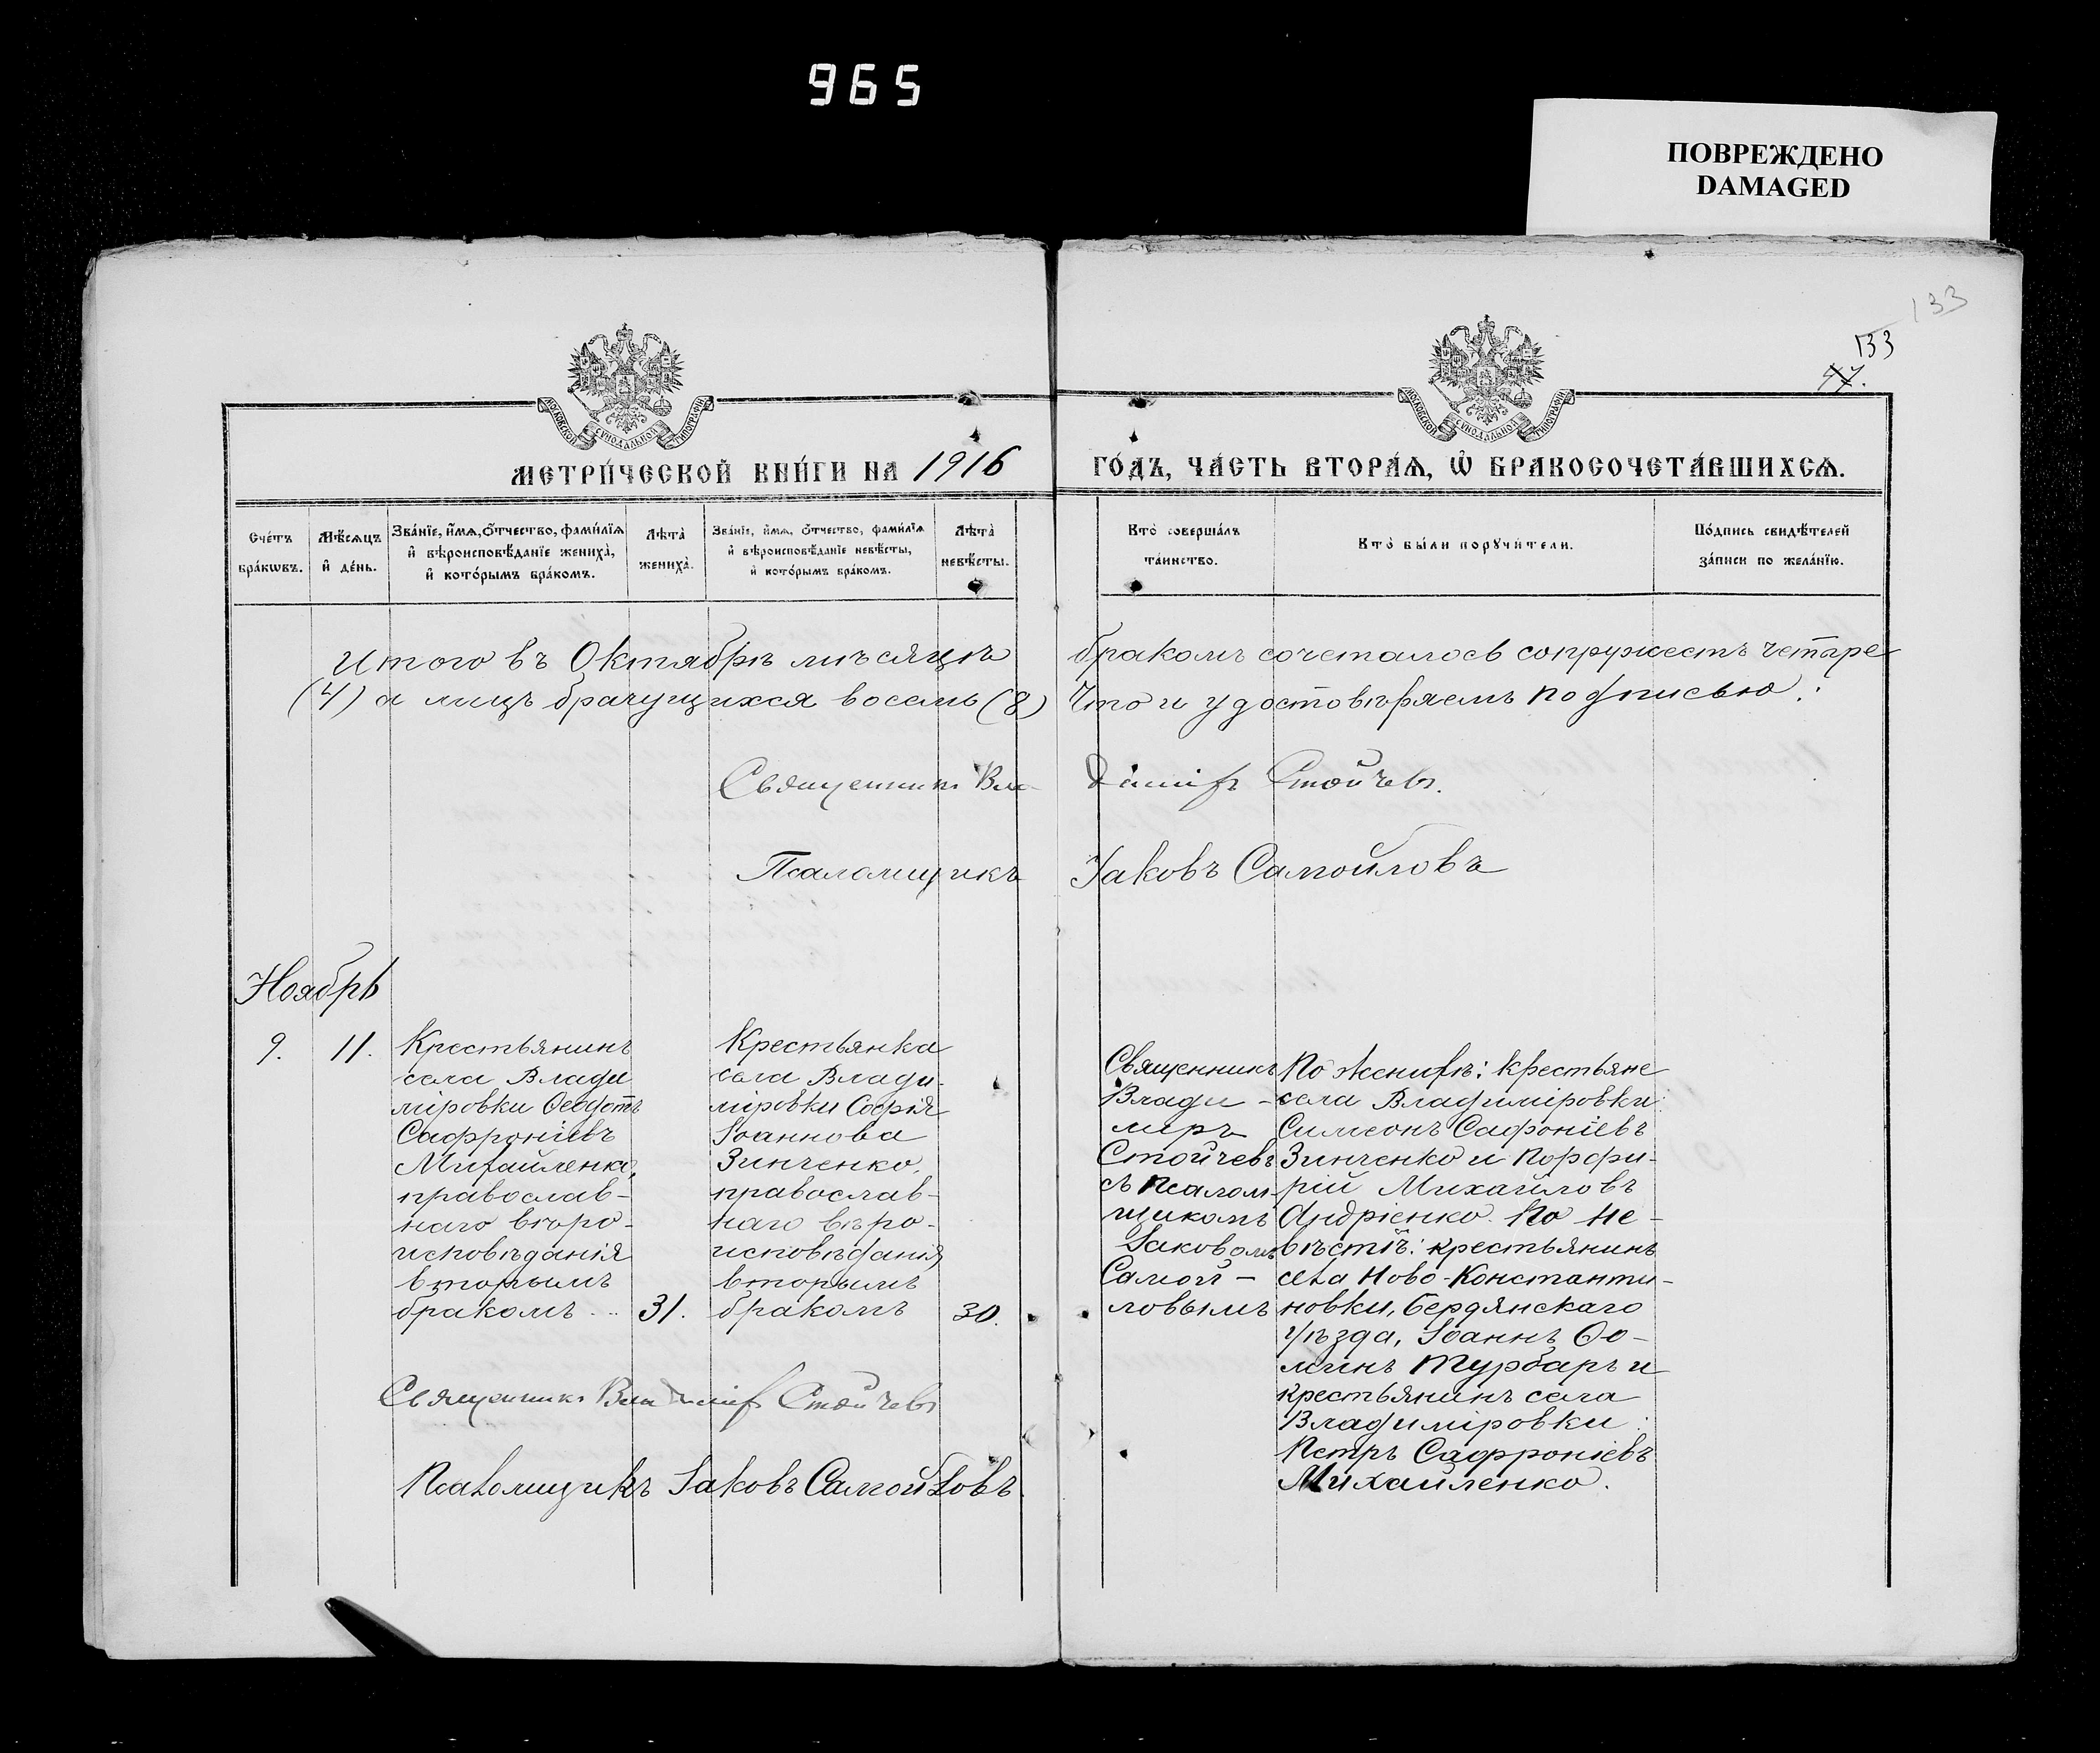 965
ПОВРЕЖДЕНО
DAMAGED
133
133
47.
МОСКОВСКОЙ СѴНОДАЛЬНОЙ ТИПОГРАФІИ
МОСКОВСКОЙ СѴНОДАЛЬНОЙ ТИПОГРАФІИ
МЕТРИ́ЧЕСКОЙ КНИ́ГИ НА 1916 ГО́ДЪ, ЧА́СТЬ ВТОРА́Ѧ, Ѽ БРАКОСОЧЕТА́ВШИХСѦ.
Сче́тъ
бра́кѡвъ.
Мѣ́сѧцъ
и҆ де́нь.
Зва́нїе, и҆́мѧ, ѻ҆́тчество, фами́лїѧ
и҆ вѣроисповѣ́данїе жениха̀,
и҆ кото́рымъ бра́комъ.
Лѣта̀
жениха̀.
Зва́нїе, и҆́мѧ, ѻ҆́тчество, фами́лїѧ
и҆ вѣроисповѣ́данїе невѣ́сты,
и҆ кото́рымъ бра́комъ.
Лѣта̀
невѣ́сты.
Кто̀ соверша́лъ
та́инство.
Кто̀ бы́ли порꙋчи́тели.
По́дпись свидѣ́телей
за́писи по жела́нїю.
Итого въ Октябрѣ мѣсяцѣ бракомъ сочеталось супружествъ четыре
(4) а лицъ брачущихся восемь (8) Что и удостовѣряемъ подписью:
Священникъ Владимiръ Стойчевъ.
Псаломщикъ Iаковъ Самойловъ
Ноябрь
9.
11.
Крестьянинъ
села Влади
мiровки Ѳеодотъ
Сафронiевъ
Михайленко,
православ-
наго вѣро-
исповѣданiя
вторымъ
бракомъ ...
31.
Крестьянка
села Влади-
мiровки Софiя
Iоаннова
Зинченко,
православ-
наго вѣро-
исповѣданiя
вторымъ
бракомъ
30.
Священникъ
Влади-
миръ
Стойчевъ
съ псалом-
щикомъ
Iаковомъ
Самой-
ловымъ
По женихѣ: крестьяне
села Владимiровки:
Симеонъ Сафонiевъ
Зинченко и Порфи-
рiй Михайловъ
Андрiенко. По не-
вѣстѣ: крестьянинъ
села Ново-Константи-
новки, Бердянскаго
уѣзда, Iоаннъ Ѳо-
минъ Турбаръ и
крестьянинъ села
Владимiровки:
Петръ Сафронiевъ
Михайленко.
Священникъ Владимiръ Стойчевъ
Псаломщикъ Iаковъ Самойловъ.